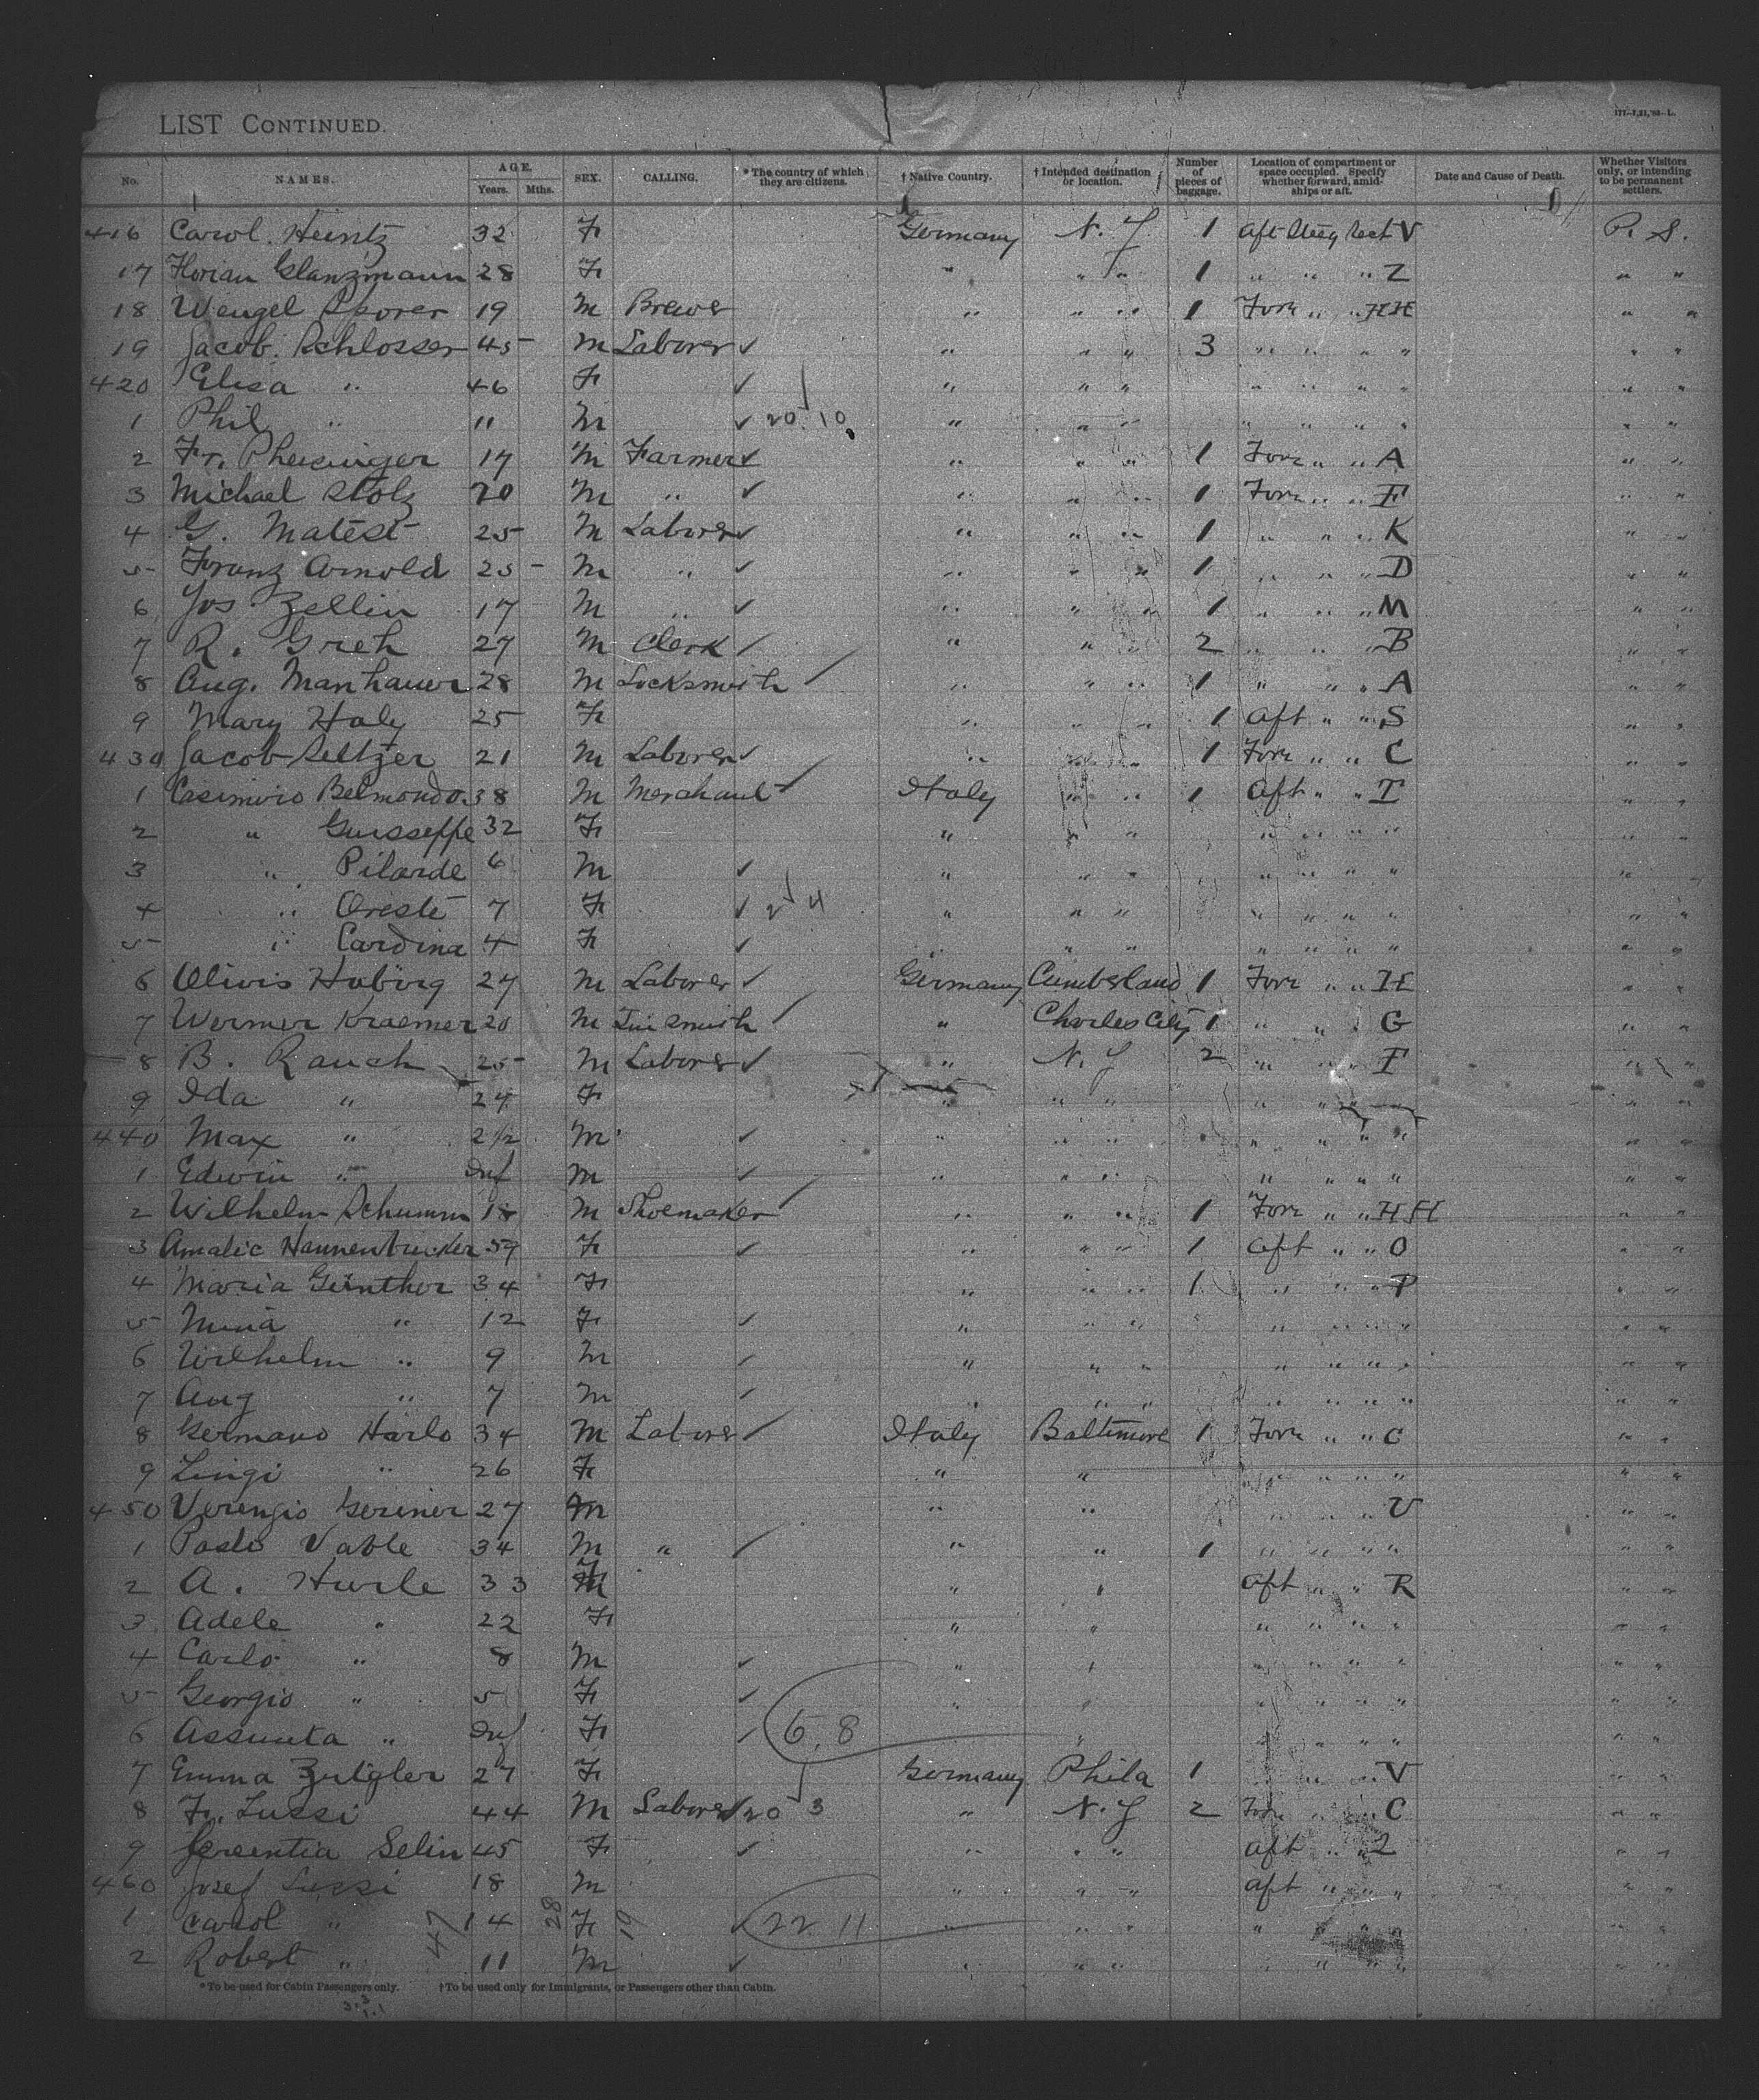 LIST CONTINUED.
177-7,21,'93-L.
No. NAMES. AGE. Years. Mths. SEX. CALLING. * The country of which they are citizens. † Native Country. † Intended destination or location. Number of pieces of baggage. Location of compartment or space occupied. Specify whether forward, amidships or aft. Date and Cause of Death. Whether Visitors only, or intending to be permanent settlers.
416 Carol. Heintz 32 F Germany N. Y 1 Aft Steeg Sect V P. S.
17 Florian Glanzmann 28 F " " " 1 " " " Z " "
18 Wengel Sporer 19 M Brewer " " " 1 Forw " " HH " "
19 Jacob. Schlosser 45 M Laborer ✓ " " " 3 " " " " " "
420 Elisa " 46 F ✓ " " " " " " " " "
1 Phil " 11 M ✓ 20 10 " " " " " " " " "
2 Fr. Pheisinger 17 M Farmer ✓ " " " 1 Forw " " A " "
3 Michael Stolz 20 M " ✓ " " " 1 Forw " " F " "
4 G. Matest 25 M Laborer ✓ " " " 1 " " " K " "
5 Franz Arnold 25 M " ✓ " " " 1 " " " D " "
6 Jos. Zellin 17 M " ✓ " " " 1 " " " M " "
7 R. Greh 27 M Clerk ✓ " " " 2 " " " B " "
8 Aug. Manhauer 28 M Locksmith ✓ " " " 1 " " " A " "
9 Mary Haly 25 F " " " 1 Aft " " S " "
430 Jacob Seltzer 21 M Laborer ✓ " " " 1 Forw " " C " "
1 Casimiro Belmondo 38 M Merchant ✓ Italy " " 1 Aft " " T " "
2 " Guisseffe 32 F " " " " " " " " "
3 " Pilarde 6 M ✓ " " " " " " " " "
4 " Oreste 7 F ✓ 2 4 " " " " " " " " "
5 " Cardina 4 F ✓ " " " " " " " " "
6 Olivis Hubing 27 M Laborer ✓ Germany Cumberland 1 Forw " " H " "
7 Wermer Kraemer 20 M Tinsmith ✓ " Charles City 1 " " " G " "
8 B. Rauch 25 M Laborer ✓ " N. Y 2 " " " F " "
9 Ida " 24 F " " " " " " " " "
440 Max " 2 1/2 M ✓ " " " " " " " " "
1 Edwin " Inf M ✓ " " " " " " " " "
2 Wilhelm Schumm 18 M Shoemaker ✓ " " " 1 Forw " " HH " "
3 Amalie Hannenbrucker 59 F ✓ " " " 1 Aft " " O " "
4 Maria Günther 34 F " " " 1 " " " P " "
5 Mina " 12 F ✓ " " " " " " " " "
6 Wilhelm " 9 M ✓ " " " " " " " " "
7 Aug " 7 M ✓ " " " " " " " " "
8 Germano Harlo 34 M Laborer ✓ Italy Baltimore 1 Forw " " C " "
9 Lingi " 26 F " " " " " " " "
450 Verengio Geriner 27 M " " " " " V " "
1 Paslo Vable 34 M " ✓ " " 1 " " " " " "
2 A. Hurle 33 F " " Aft " " R " "
3 Adele " 22 F " " " " " " " "
4 Carlo " 8 M ✓ " " " " " " " "
5 Georgio " 5 F ✓ " " " " " " " "
6 Assunta " Inf F ✓ 6,8 " " " " " " " "
7 Emma Zutgler 27 F Germany Phila 1 " " " V " "
8 Fr. Lussi 44 M Laborer ✓ 20 3 " N. Y 2 Forw " " C " "
9 Selin 45 F ✓ " " " Aft " " Z " "
460 Josef Lussi 18 M " " " Aft " " " " "
1 Carol " 14 F ✓ 22 11 " " " " " " " " "
2 Robert " 11 M ✓ " " " " " " " " "
47 28 19
* To be used for Cabin Passengers only. † To be used only for Immigrants, or Passengers other than Cabin.